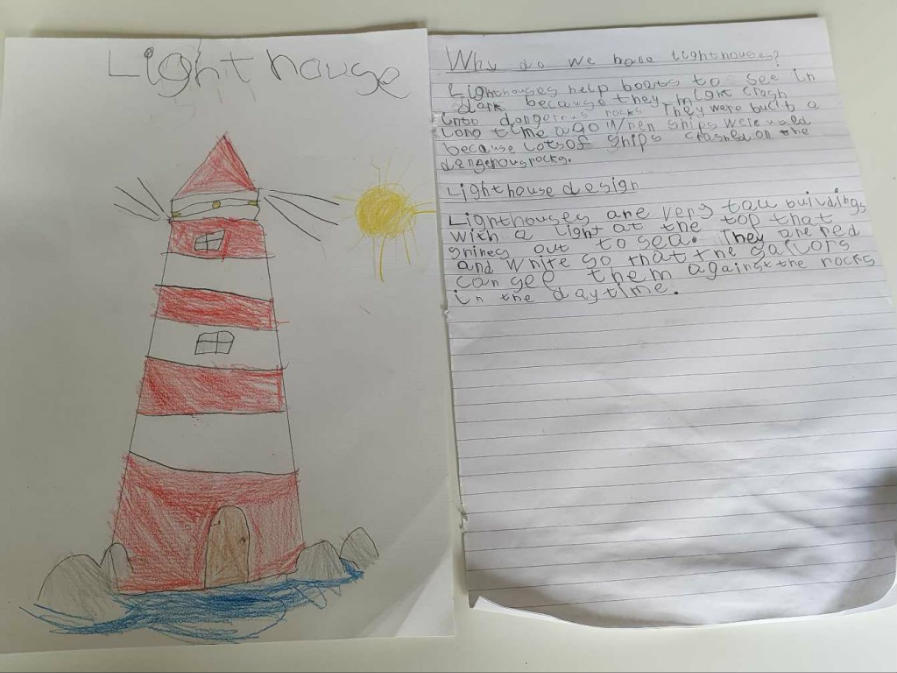 Lighthouse
Why do we have lighthouses?
Lighthouses help boats to see in
dark because they might crash
into dangerous rocks They were built a
long time ago when ships were
because lots of ships crashed on the
dangerous rocks.
Lighthouse design
Lighthouses are very tall buildings
with a light at the top that
shines out to sea. They are red
and white so that the sailors
can see them against the rocks
in the daytime.